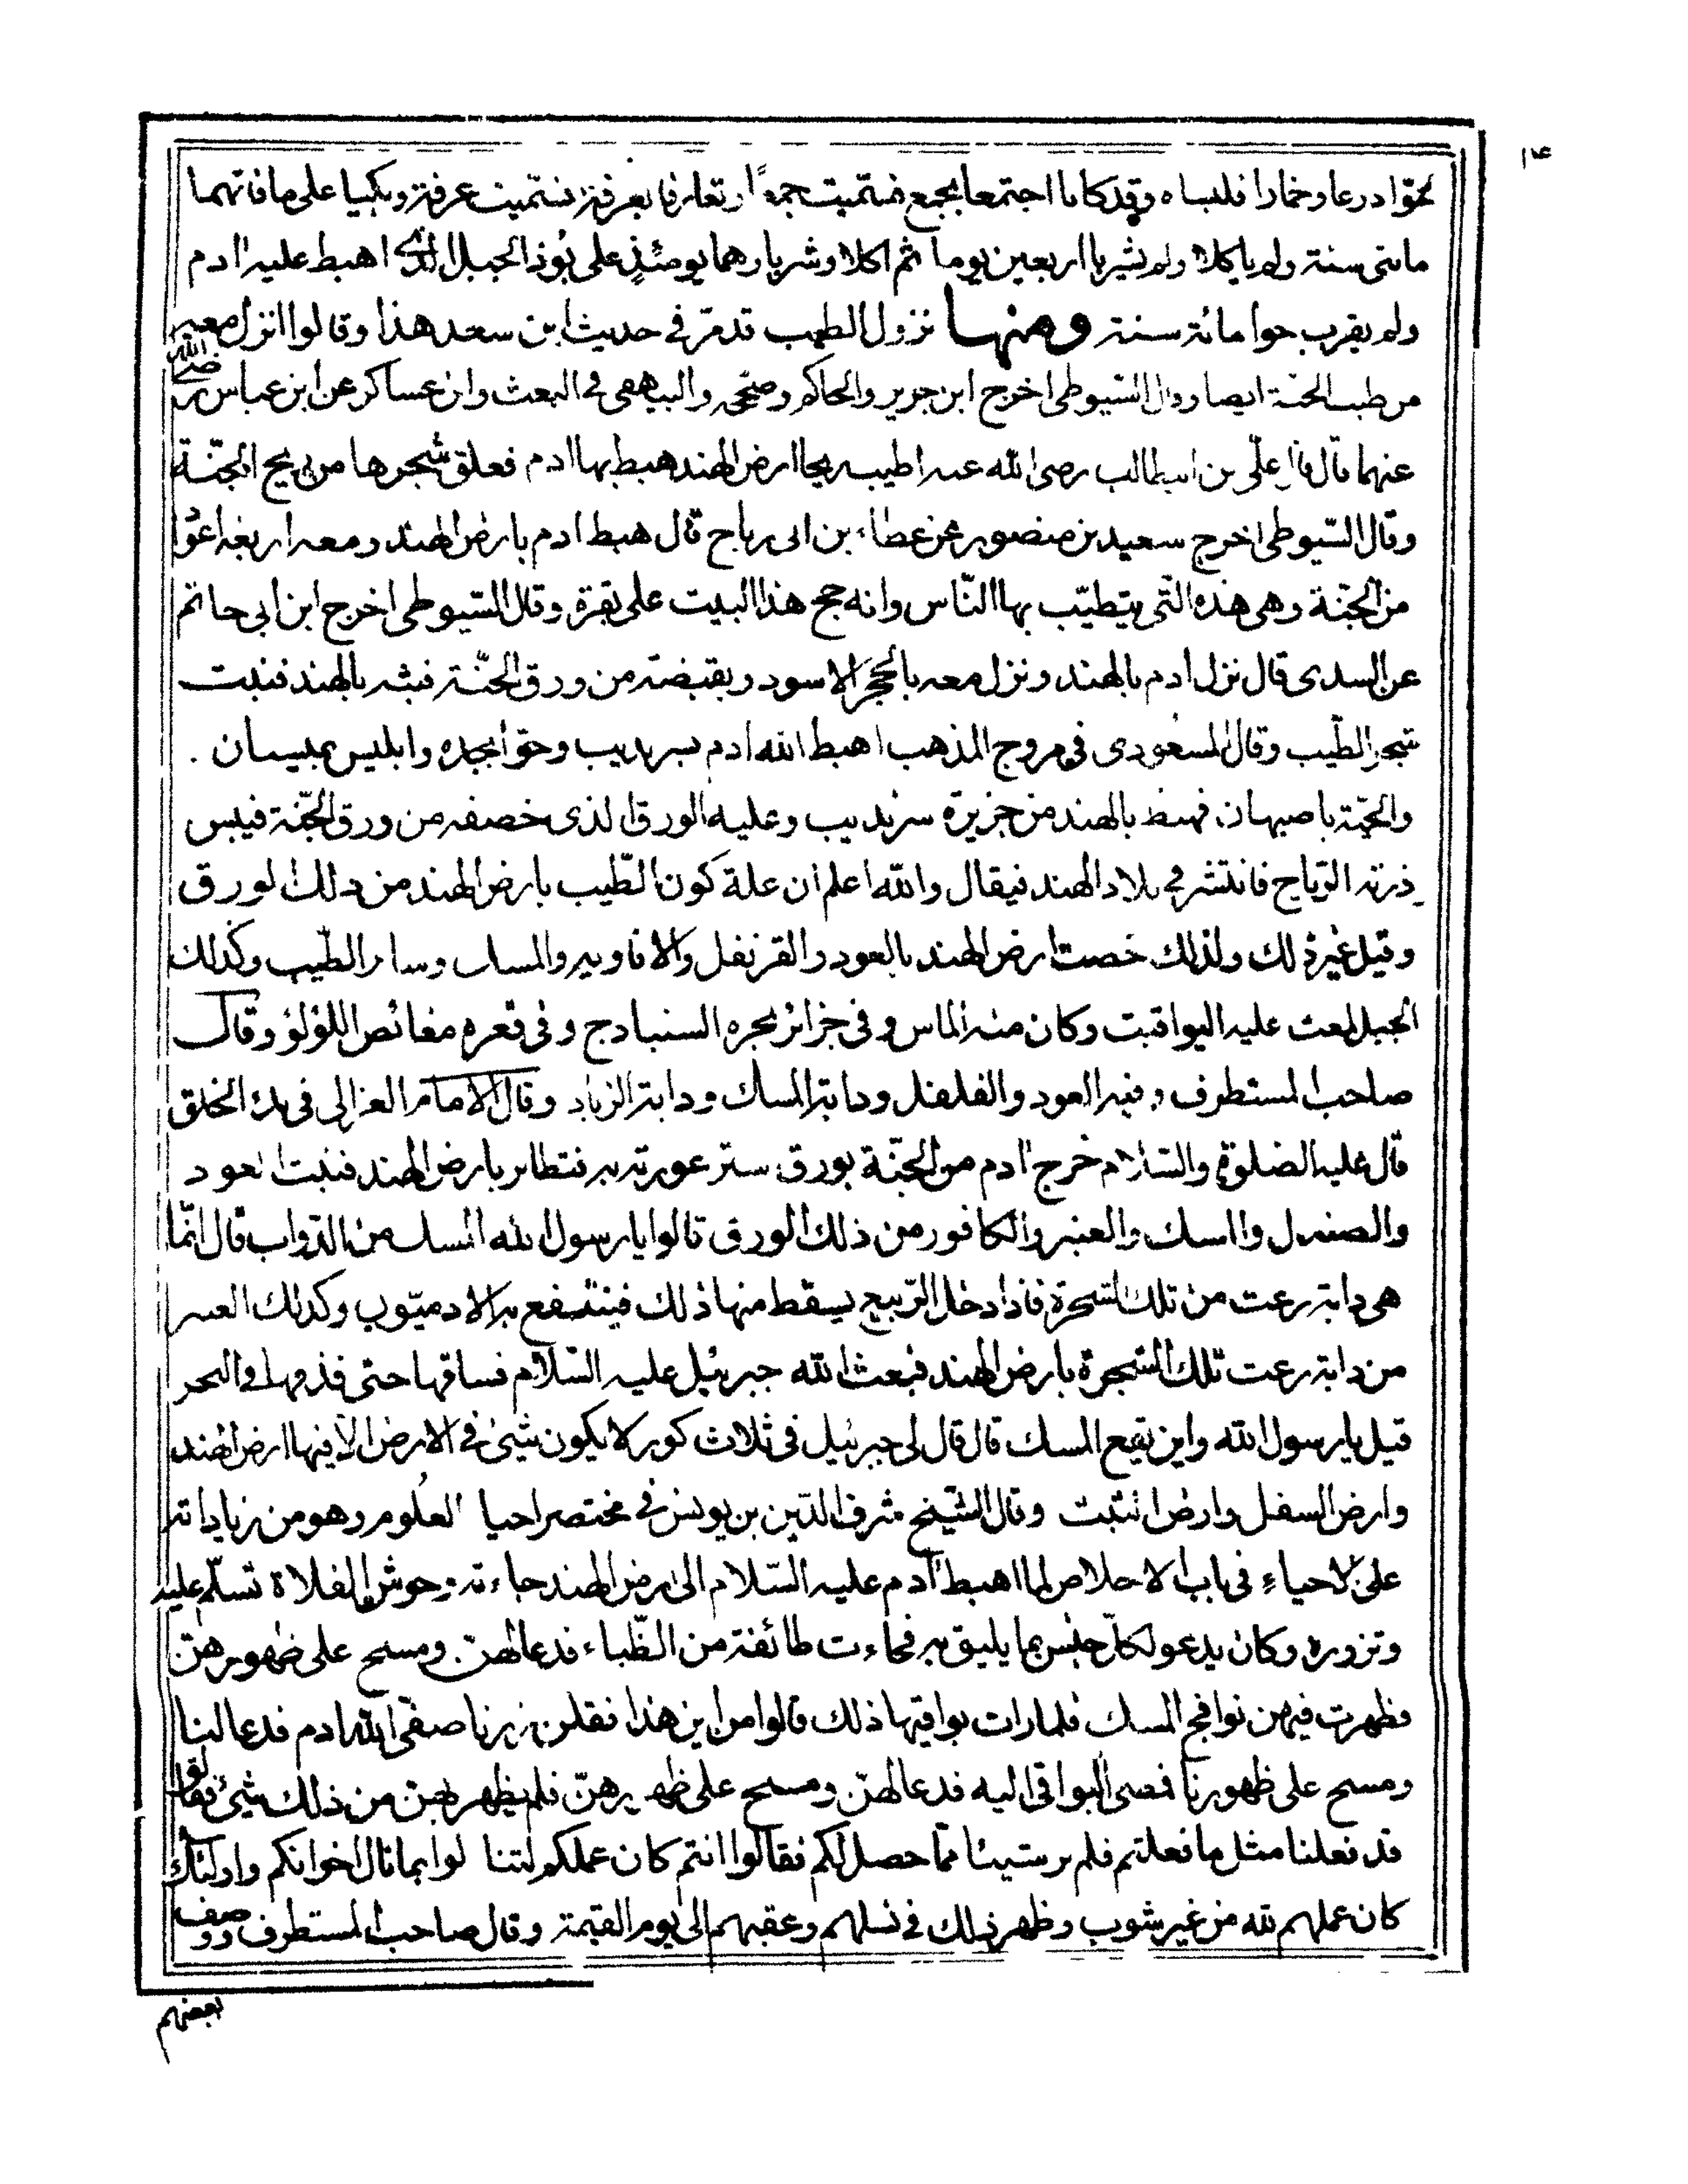 ١٤
لحوّا درعا وخمارا فلبساه وقد كانا اجتمعا بجمع فسّميت جمعًا وتعارفا بعرفة فسّميت عرفة وبكيا على ما فاتهما
مائتى سنة ولم ياكلا ولم يشربا اربعين يوما ثم اكلا وشربا وهما يومئذٍ على نُوذ الجبل الذى اهبط عليه ادم
ولم يقرب حوا مائة سنة ومنها نزول الطيب قد مرّ فى حديث ابن سعد هذا وقالوا انزل معه
من طيب الجنة ايضا وقال السّيوطى اخرج ابن جرير والحاكم وصحّحه والبيهقى فى البعث وابن عساكر عن ابن عباس رضى الله
عنهما قال قال علىّ بن ابيطالب رضى الله عنه اطيب ريحا ارض الهند هبط بها ادم فعلق شجرها من ريح الجنّة
وقال السّيوطى اخرج سعيد بن منصور عن عطاء بن ابى رباح قال هبط ادم بارض الهند ومعه اربعة اعوا
من الجنّة وهى هذه الّتى يتطيّب بها النّاس وانه حج هذا البيت على بقرة وقال السّيوطى اخرج ابن ابى حاتم
عن السدى قال نزل ادم بالهند ونزل معه بالحجر الاسود وبقبضة من ورق الجنّة فبثه بالهند فنبتت
شجر الطّيب وقال المسعودى فى مروج المذهب اهبط الله ادم بسرنديب وحوّا بجده وابليس بميسان
والحيّة باصبهان فهبط بالهند من جزيرة سرنديب وعليه الورق الذى خصفه من ورق الجنّة فيبس
فذرته الرّياح فانتشر فى بلاد الهند فيقال والله اعلم ان علة كون الطّيب بارض الهند من ذلك الورق
وقيل غير ذلك ولذلك خصت ارض الهند بالعود والقرنفل والافاويه والمسك وسائر الطّيب وكذلك
الجبل لمعت عليه اليواقيت وكان منه الماس وفى جزائر بحره السنبادج وفى قعره مغائص اللؤلؤ وقال
صاحب المستطرف وفيه العود والفلفل ودابة المسك ودابة الزباد وقال الامام الغزالى فى بدء الخلق
قال عليه الصّلوة والسّلام خرج ادم من الجنّة بورق ستر عورته به فتطاير بارض الهند فنبت العود
والصندل والمسك والعنبر والكافور من ذلك الورق قالوا يا رسول الله المسك من الدّواب قال انّما
هى دابة رعت من تلك الشجرة فاذا دخل الرّبيع يسقط منها ذلك فينتفع به الادميّون وكذلك العنبر
من دابة رعت تلك الشّجرة بارض الهند فبعث الله جبرئيل عليه السّلام فساقها حتى قذفها فى البحر
قيل يا رسول الله واين يقع المسك قال قال لى جبرئيل فى ثلاث كور لا يكون شئ فى الارض الا فيها ارض الهند
وارض السفل وارض التّبت وقال الشّيخ شرف الدّين بن يونس فى مختصر احيا العلوم وهو من زياداته
على الاحياء فى باب الاخلاص لما اهبط ادم عليه السّلام الى ارض الهند جاءته وحوش الفلاة تسلّم عليه
وتزوره وكان يدعو لكلّ جنس بما يليق به فجاءت طائفة من الظّباء فدعا لهنّ ومسح على ظهورهنّ
فظهرت فيهن نوافج المسك فلما رات بواقيها ذلك قالوا من اين هذا فقلن زرنا صفى الله ادم فدعا لنا
ومسح على ظهورنا فمضى البواقى اليه فدعا لهنّ ومسح على ظهورهنّ فلم يظهر لهنّ من ذلك شئ فقالوا
قد فعلنا مثل ما فعلتم فلم نر شيئا ممّا حصل لكم فقالوا انتم كان عملكم لتنالوا بما نال اخوانكم واولئك
كان عملهم لله من غير شوب وظهر ذلك فى نسلهم وعقبهم الى يوم القيمة وقال صاحب المستطرف ووصف
بعضهم